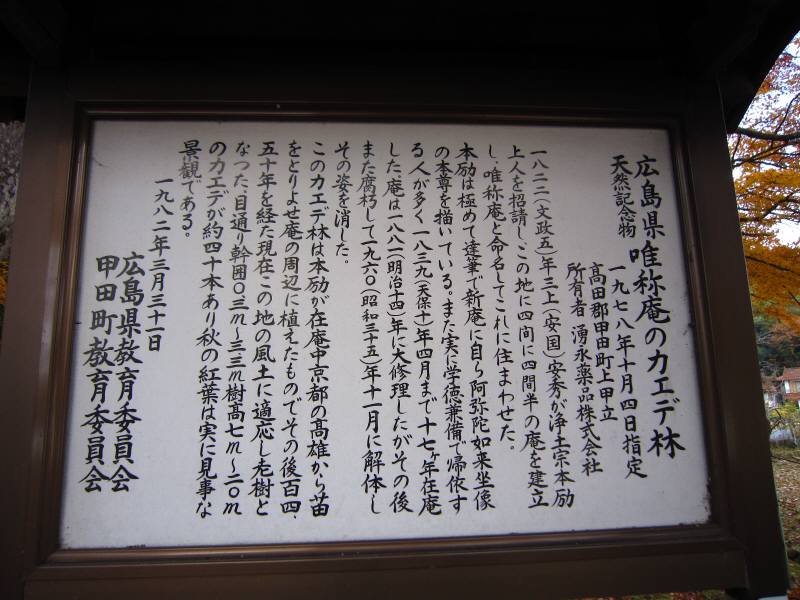 広島県唯称庵のカエデ林
天然記念物
一九七八年十月四日指定
高田郡甲田町上甲立
所有者 湧永薬品株式会社
一八二二(文政五)年三上(安国)安秀が浄土宗本励
上人を招請し、この地に四間に四間半の庵を建立
し、唯称庵と命名してこれに住まわせた。
本励は極めて達筆で新庵に自ら阿弥陀如来坐像
の本尊を描いている。また実に学徳兼備で帰依す
る人が多く一八三九(天保十)年四月まで十七ヶ年在庵
した。庵は一八八一(明治十四)年に大修理したがその後
また腐朽して一九六〇(昭和三十五)年十一月に解体し
その姿を消した。
このカエデ林は本励が在庵中京都の高雄から苗
をとりよせ庵の周辺に植えたものでその後百四、
五十年を経た現在この地の風土に適応し老樹と
なつた。目通り幹囲〇・三m〜三・三m樹高七m〜二〇m
のカエデが約四十本あり秋の紅葉は実に見事な
景観である。
一九八二年三月三十一日
広島県教育委員会
甲田町教育委員会